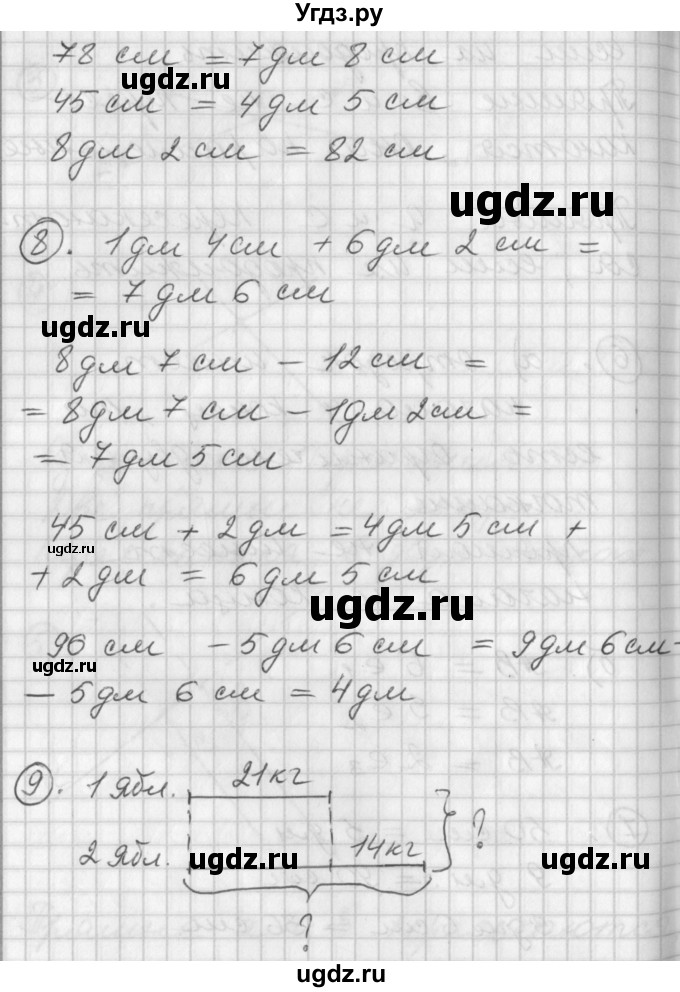 Угдз.ру
78 см = 7 дм 8 см
ugdz.ru
45 см = 4 дм 5 см
8 дм 2 см = 82 см
ugdz.ru
8. 1 дм 4 см + 6 дм 2 см =
= 7 дм 6 см
ugdz.ru
8 дм 7 см - 12 см =
= 8 дм 7 см - 1 дм 2 см =
= 7 дм 5 см
45 см + 2 дм = 4 дм 5 см +
ugdz.ru
+ 2 дм = 6 дм 5 см
ugdz.ru
96 см - 5 дм 6 см = 9 дм 6 см -
ugdz.ru
- 5 дм 6 см = 4 дм
9. 1 ябл. 21 кг
?
2 ябл. 14 кг
ugdz.ru
ugdz.ru
?
ugdz.ru